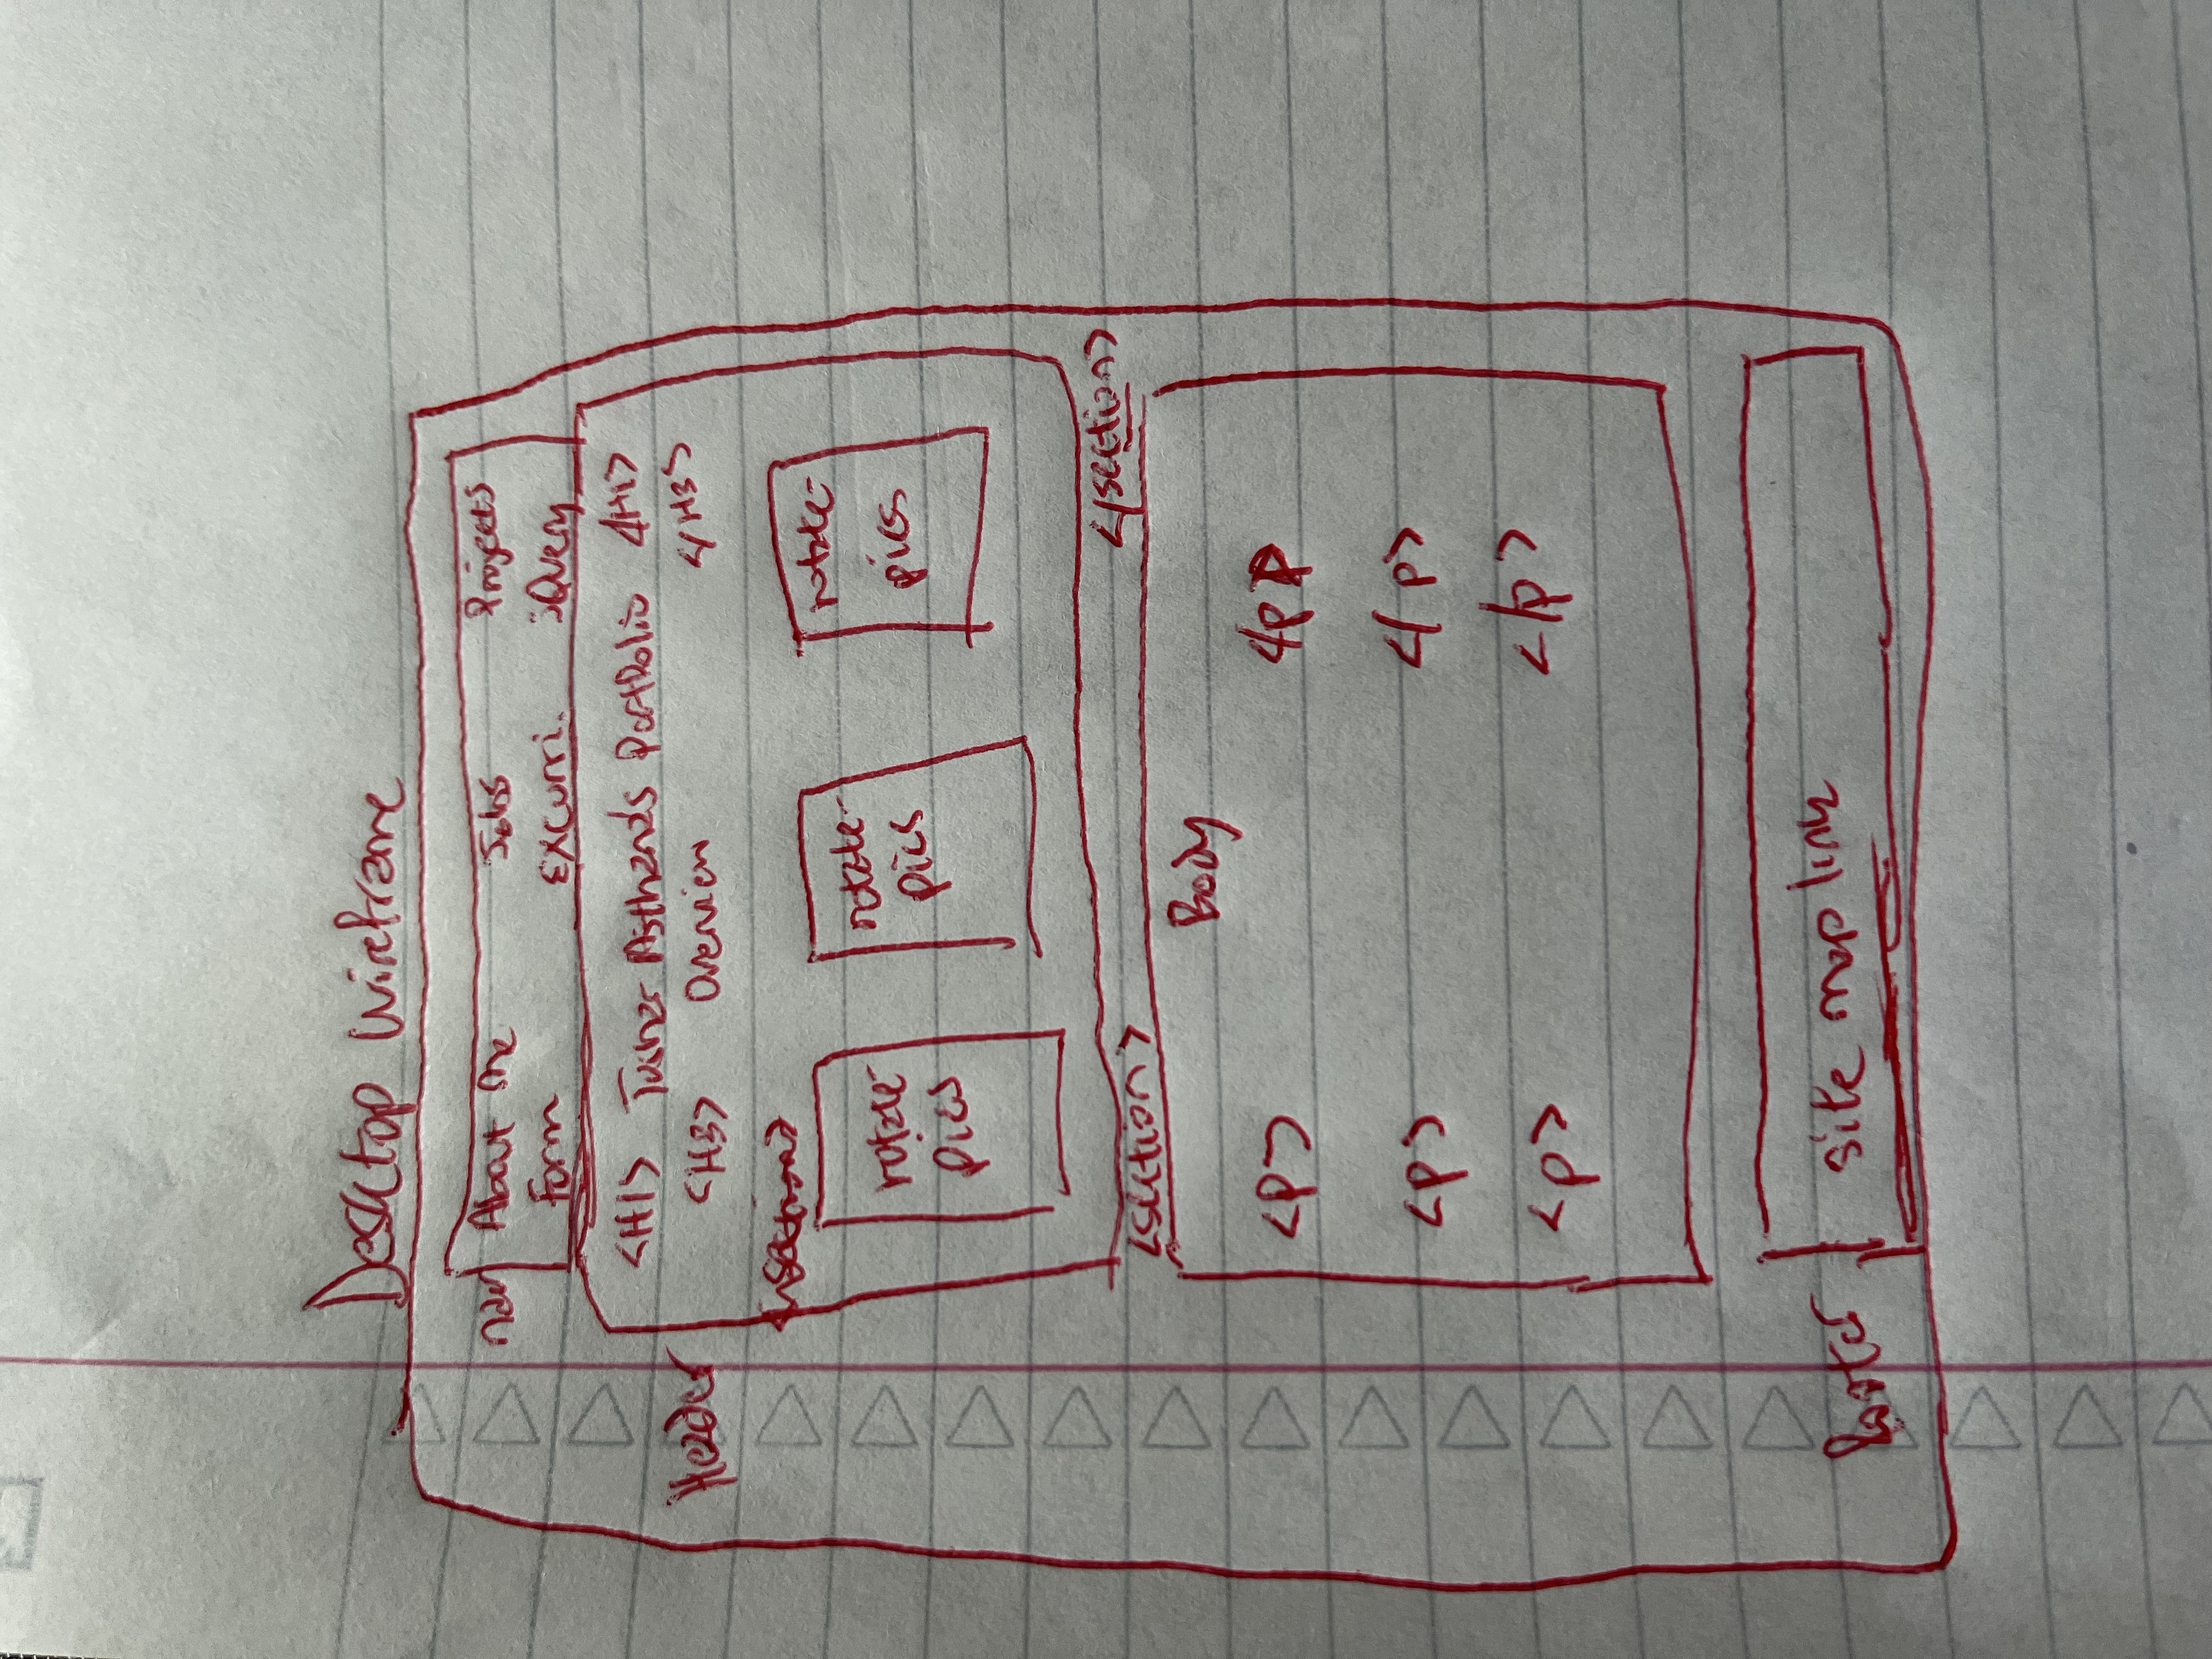 Desktop Wireframe
nav About me Jobs Projects
Form Excurri. jQuery
<H1> Tushar Asthana's Portfolio </H1>
Header <H3> Overview </H3>
<section>
rotate- rotate- rotate-
pics pics pics
</section>
<section>
Body
<p> </p>
<p> </p>
<p> </p>
Footer site map link